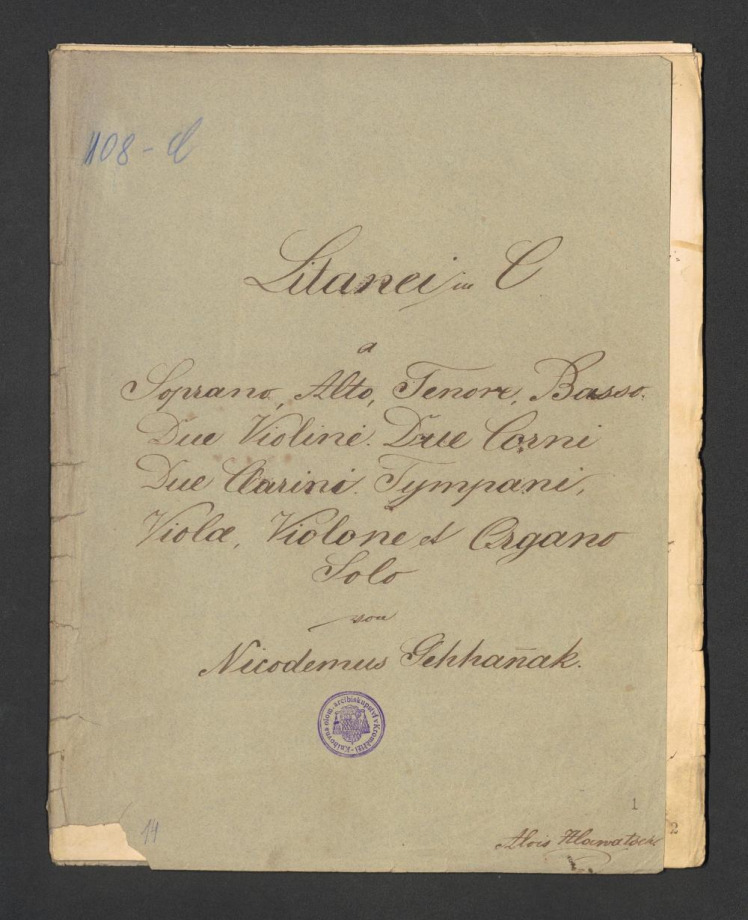 108-C
Litanei in C
a
Soprano, Alto, Tenore, Basso.
Due Violini. Due Corni
Due Clarini. Tympani,
Viola, Violone et Organo
Solo
von
Nicodemus
Knihovna olom. arcibiskupství v Kroměříži
1
2
14
Alois Hlawatsch